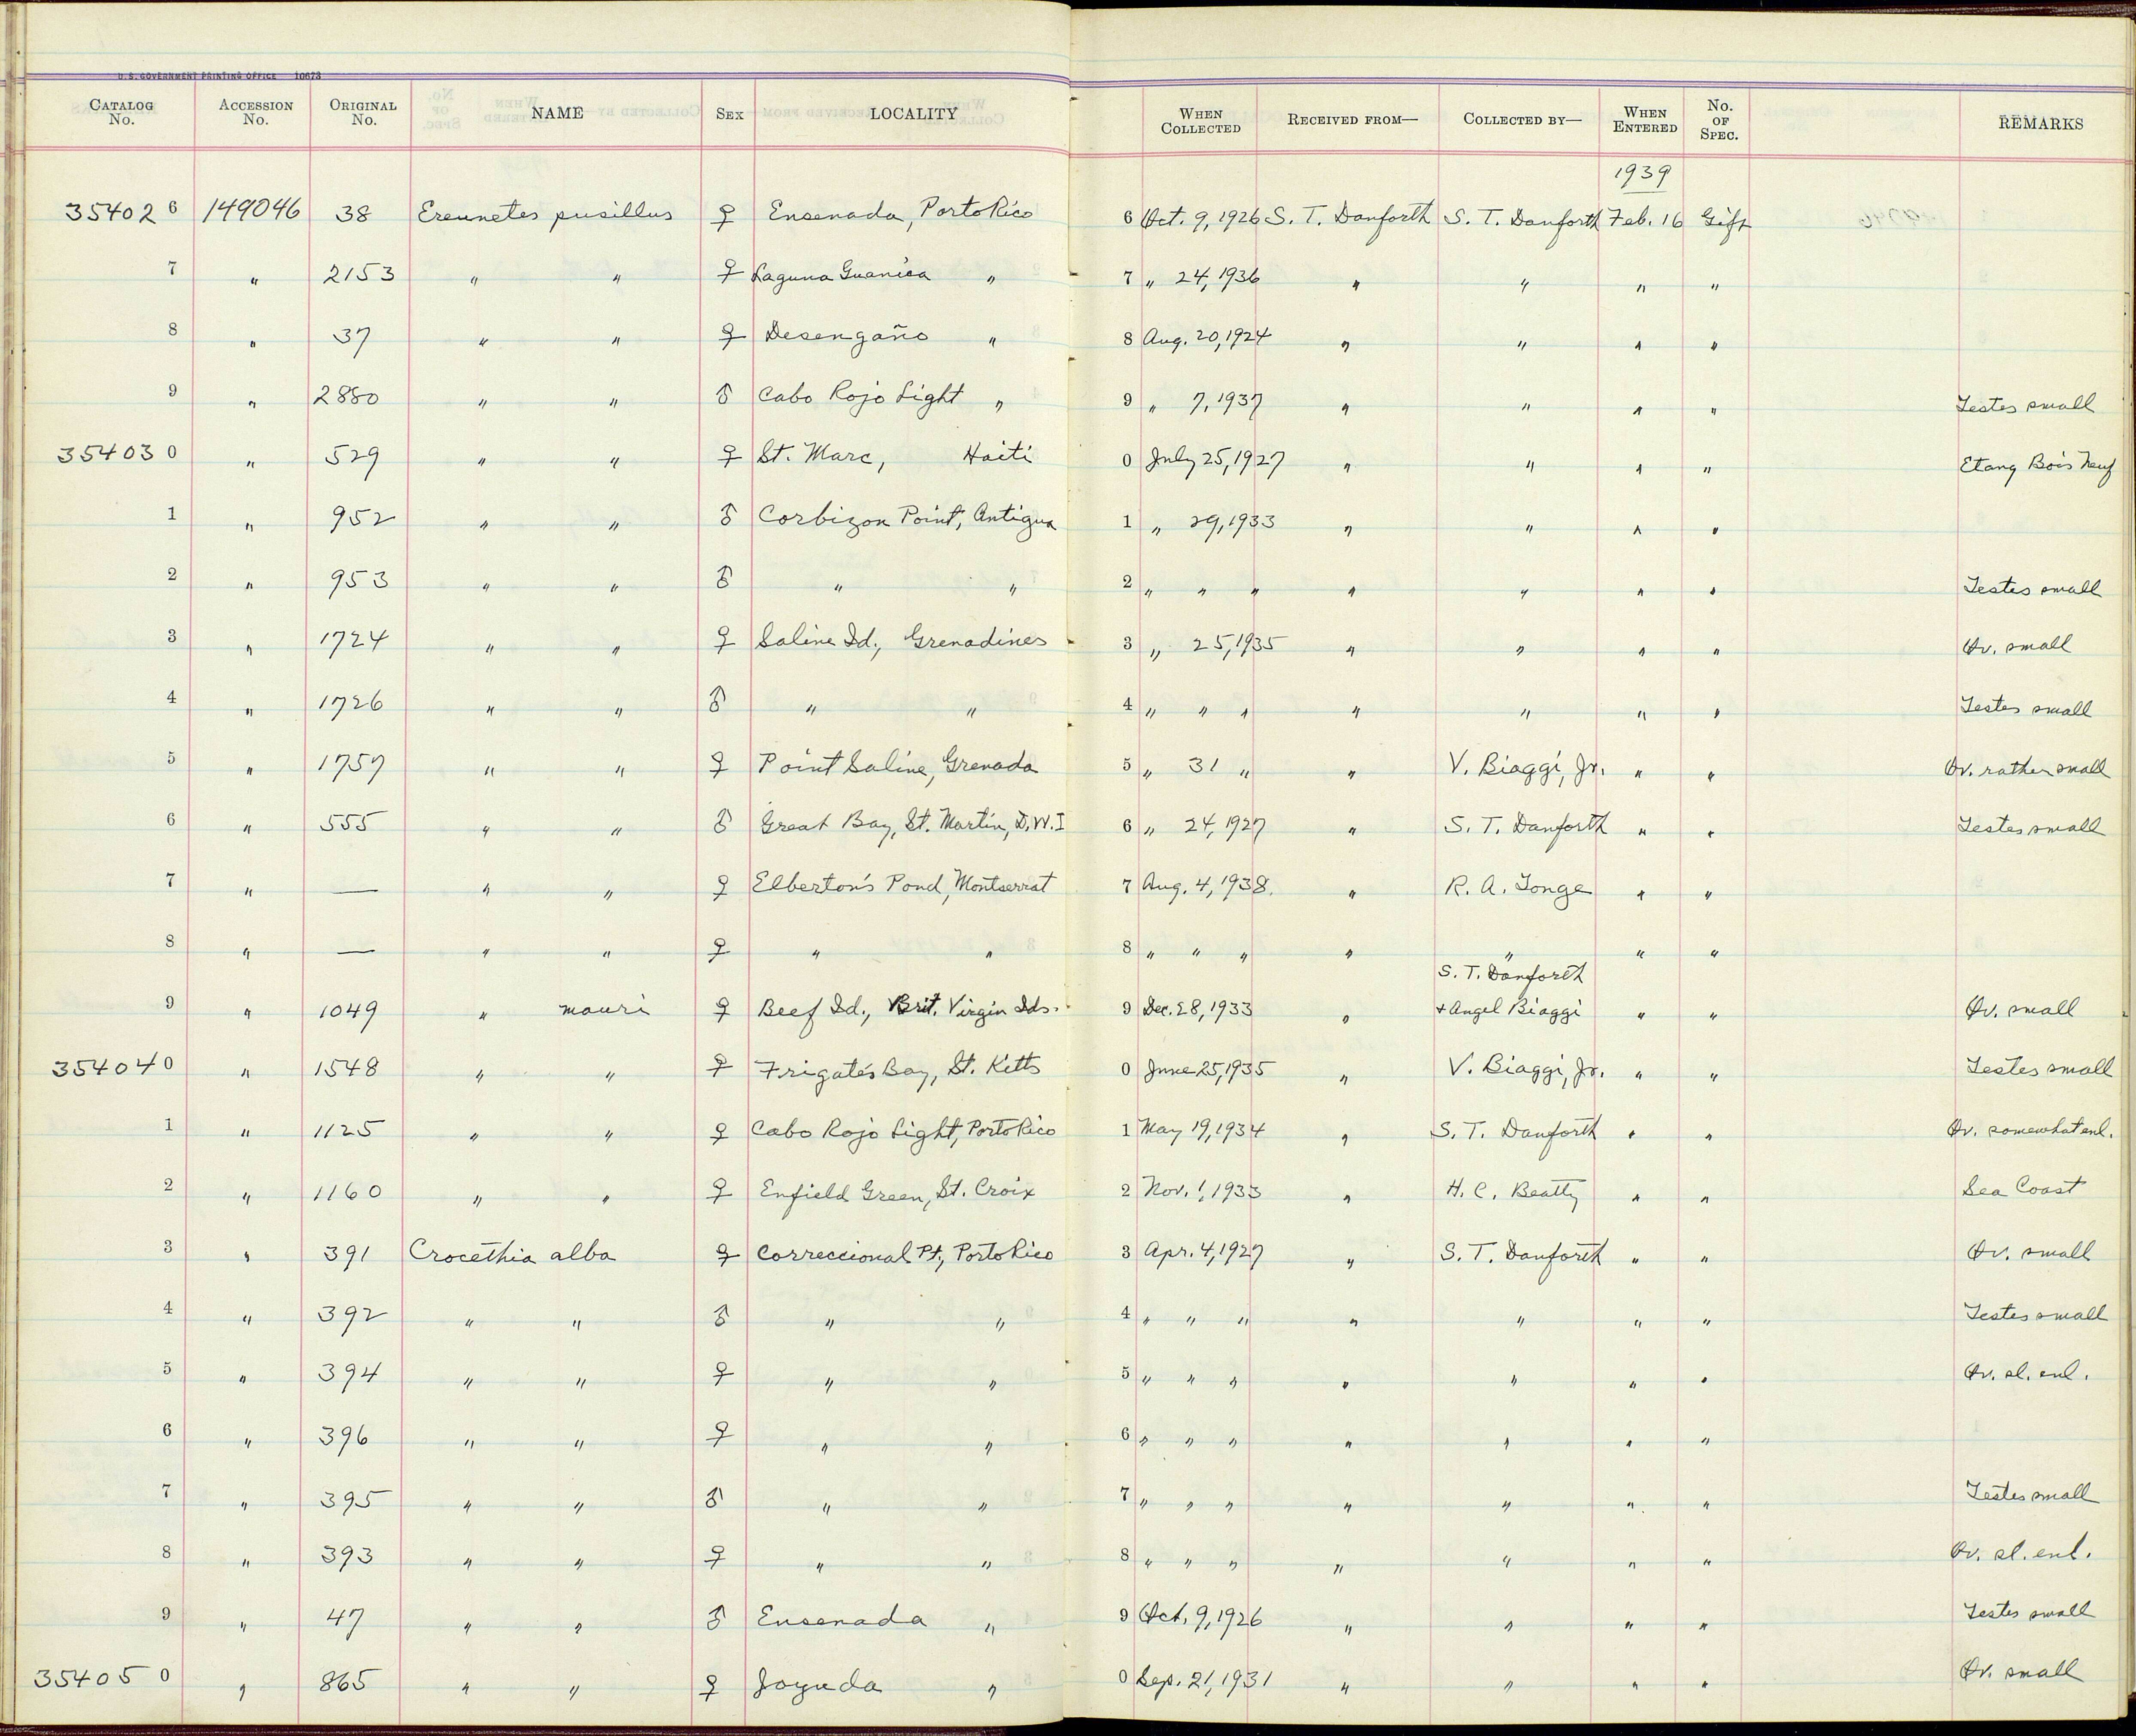 U. S. GOVERNMENT PRINTING OFFICE 10673
CATALOG No. ACCESSION No. ORIGINAL No. NAME SEX LOCALITY WHEN COLLECTED RECEIVED FROM— COLLECTED BY— WHEN ENTERED No. OF SPEC. REMARKS
1939
354026 149046 38 Ereunetes pusillus ♀ Ensenada, Porto Rico 6 Oct. 9, 1926 S. T. Danforth S. T. Danforth Feb. 16 Gift
7 " 2153 " " ♀ Laguna Guanica " 7 " 24, 1936 " " " "
8 " 37 " " ♀ Desengaño " 8 Aug. 20, 1924 " " " "
9 " 2880 " " ♂ Cabo Rojo Light " 9 " 7, 1937 " " " " Testes small
354030 " 529 " " ♀ St. Marc, Haiti 0 July 25, 1927 " " " " Etang Bois Neuf
1 " 952 " " ♂ Corbizon Point, Antigua 1 " 29, 1933 " " " "
2 " 953 " " ♂ " " 2 " " " " " " " Testes small
3 " 1724 " " ♀ Saline Id., Grenadines 3 " 25, 1935 " " " " Ov. small
4 " 1726 " " ♂ " " 4 " " " " " " " Testes small
5 " 1757 " " ♀ Point Saline, Grenada 5 " 31 " " V. Biaggi, Jr. " " Ov. rather small
6 " 555 " " ♂ Great Bay, St. Martin, D.W.I 6 " 24, 1927 " S. T. Danforth " " Testes small
7 " — " " ♀ Elberton's Pond, Montserrat 7 Aug. 4, 1938. " R. A. Tonge " "
8 " — " " ♀ " " 8 " " " " " " "
9 " 1049 " mauri ♀ Beef Id., Brit. Virgin Ids. 9 Dec. 28, 1933 " S. T. Danforth + Angel Biaggi " " Ov. small
354040 " 1548 " " ♀ Frigate's Bay, St. Kitts 0 June 25, 1935 " V. Biaggi, Jr. " " Testes small
1 " 1125 " " ♀ Cabo Rojo Light, Porto Rico 1 May 19, 1934 " S. T. Danforth " " Ov. somewhat enl.
2 " 1160 " " ♀ Enfield Green, St. Croix 2 Nov. 1, 1933 " H. C. Beatty " " Sea Coast
3 " 391 Crocethia alba ♀ Correccional Pt., Porto Rico 3 Apr. 4, 1927 " S. T. Danforth " " Ov. small
4 " 392 " " ♂ " " 4 " " " " " " " Testes small
5 " 394 " " ♀ " " 5 " " " " " " " Ov. sl. enl.
6 " 396 " " ♀ " " 6 " " " " " " "
7 " 395 " " ♂ " " 7 " " " " " " " Testes small
8 " 393 " " ♀ " " 8 " " " " " " " Ov. sl. enl.
9 " 47 " " ♂ Ensenada " 9 Oct. 9, 1926 " " " " Testes small
354050 " 865 " " ♀ Joyuda " 0 Sep. 21, 1931 " " " " Ov. small